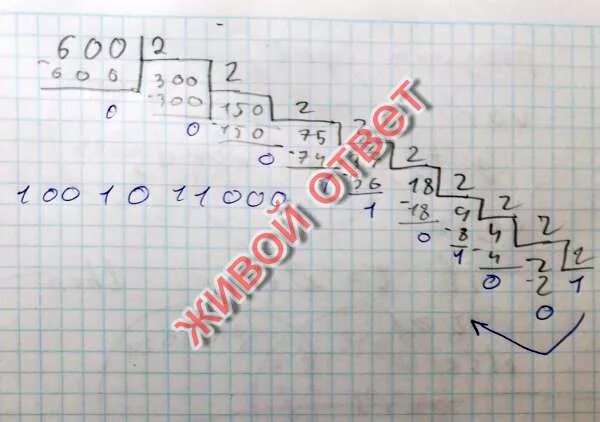 600 2
-600 300 2
0 -300 150 2
0 -150 75 2
0 -74 2
1 -36 18 2
1 -18 9 2
0 -8 4 2
1 -4 2 2
0 -2 1
0
1001011000
ЖИВОЙ ОТВЕТ